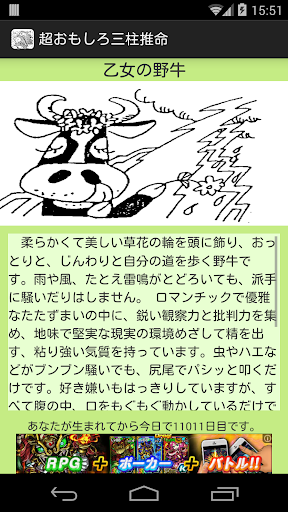 15:51
超おもしろ三柱推命
乙女の野牛
柔らかくて美しい草花の輪を頭に飾り、おっ
とりと、じんわりと自分の道を歩く野牛で
す。雨や風、たとえ雷鳴がとどろいても、派手
に騒いだりはしません。 ロマンチックで優雅
なたたずまいの中に、鋭い観察力と批判力を集
め、地味で堅実な現実の環境めざして精を出
す、粘り強い気質を持っています。虫やハエな
どがブンブン騒いでも、尻尾でパシッと叩くだ
けです。好き嫌いもはっきりしていますが、す
べて腹の中、口をもぐもぐ動かしているだけで
あなたが生まれてから今日で11011日目です。
RPG + ポーカー + バトル!!